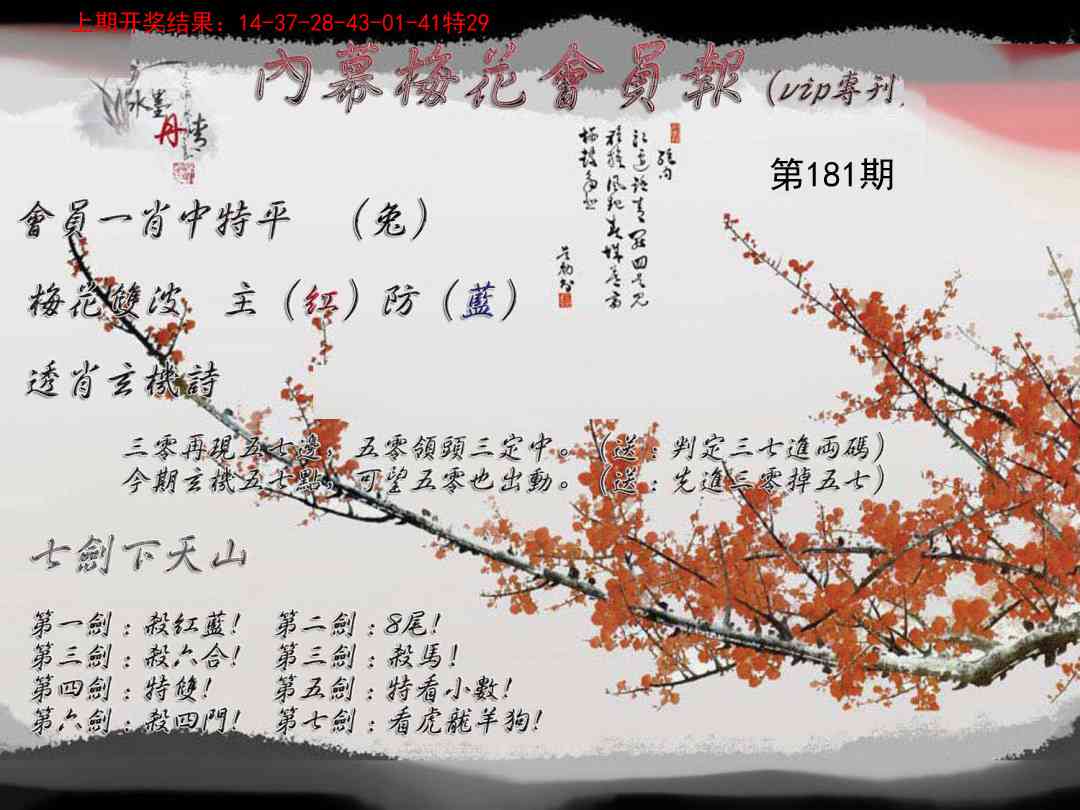 上期开奖结果：14-37-28-43-01-41特29
內幕梅花會員報（vip專刊
水墨丹青
第181期
會員一肖中特平 （兔）
梅花雙波 主（紅）防（藍）
透肖玄機詩
三零再現五七邊，五零領頭三定中。（送：判定三七進兩碼）
今期玄機五七點，可望五零也出動。（送：先進三零掉五七）
七劍下天山
第一劍：殺紅藍！ 第二劍：8尾！
第三劍：殺六合！ 第三劍：殺馬！
第四劍：特雙！ 第五劍：特看小數！
第六劍：殺四門！ 第七劍：看虎龍羊狗！